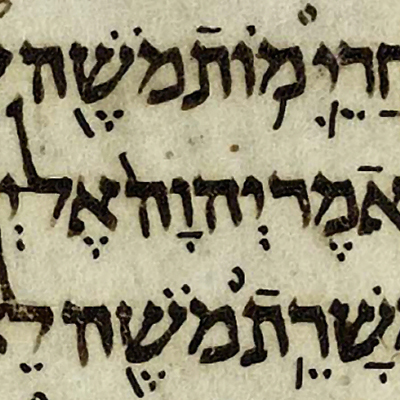 חֲרֵ֛י מ֥וֹת מֹשֶׁ֖ה
אמֶר יְהוָה֙ אֶל יְ
שָׁרֵ֥ת מֹשֶׁ֖ה לֵ